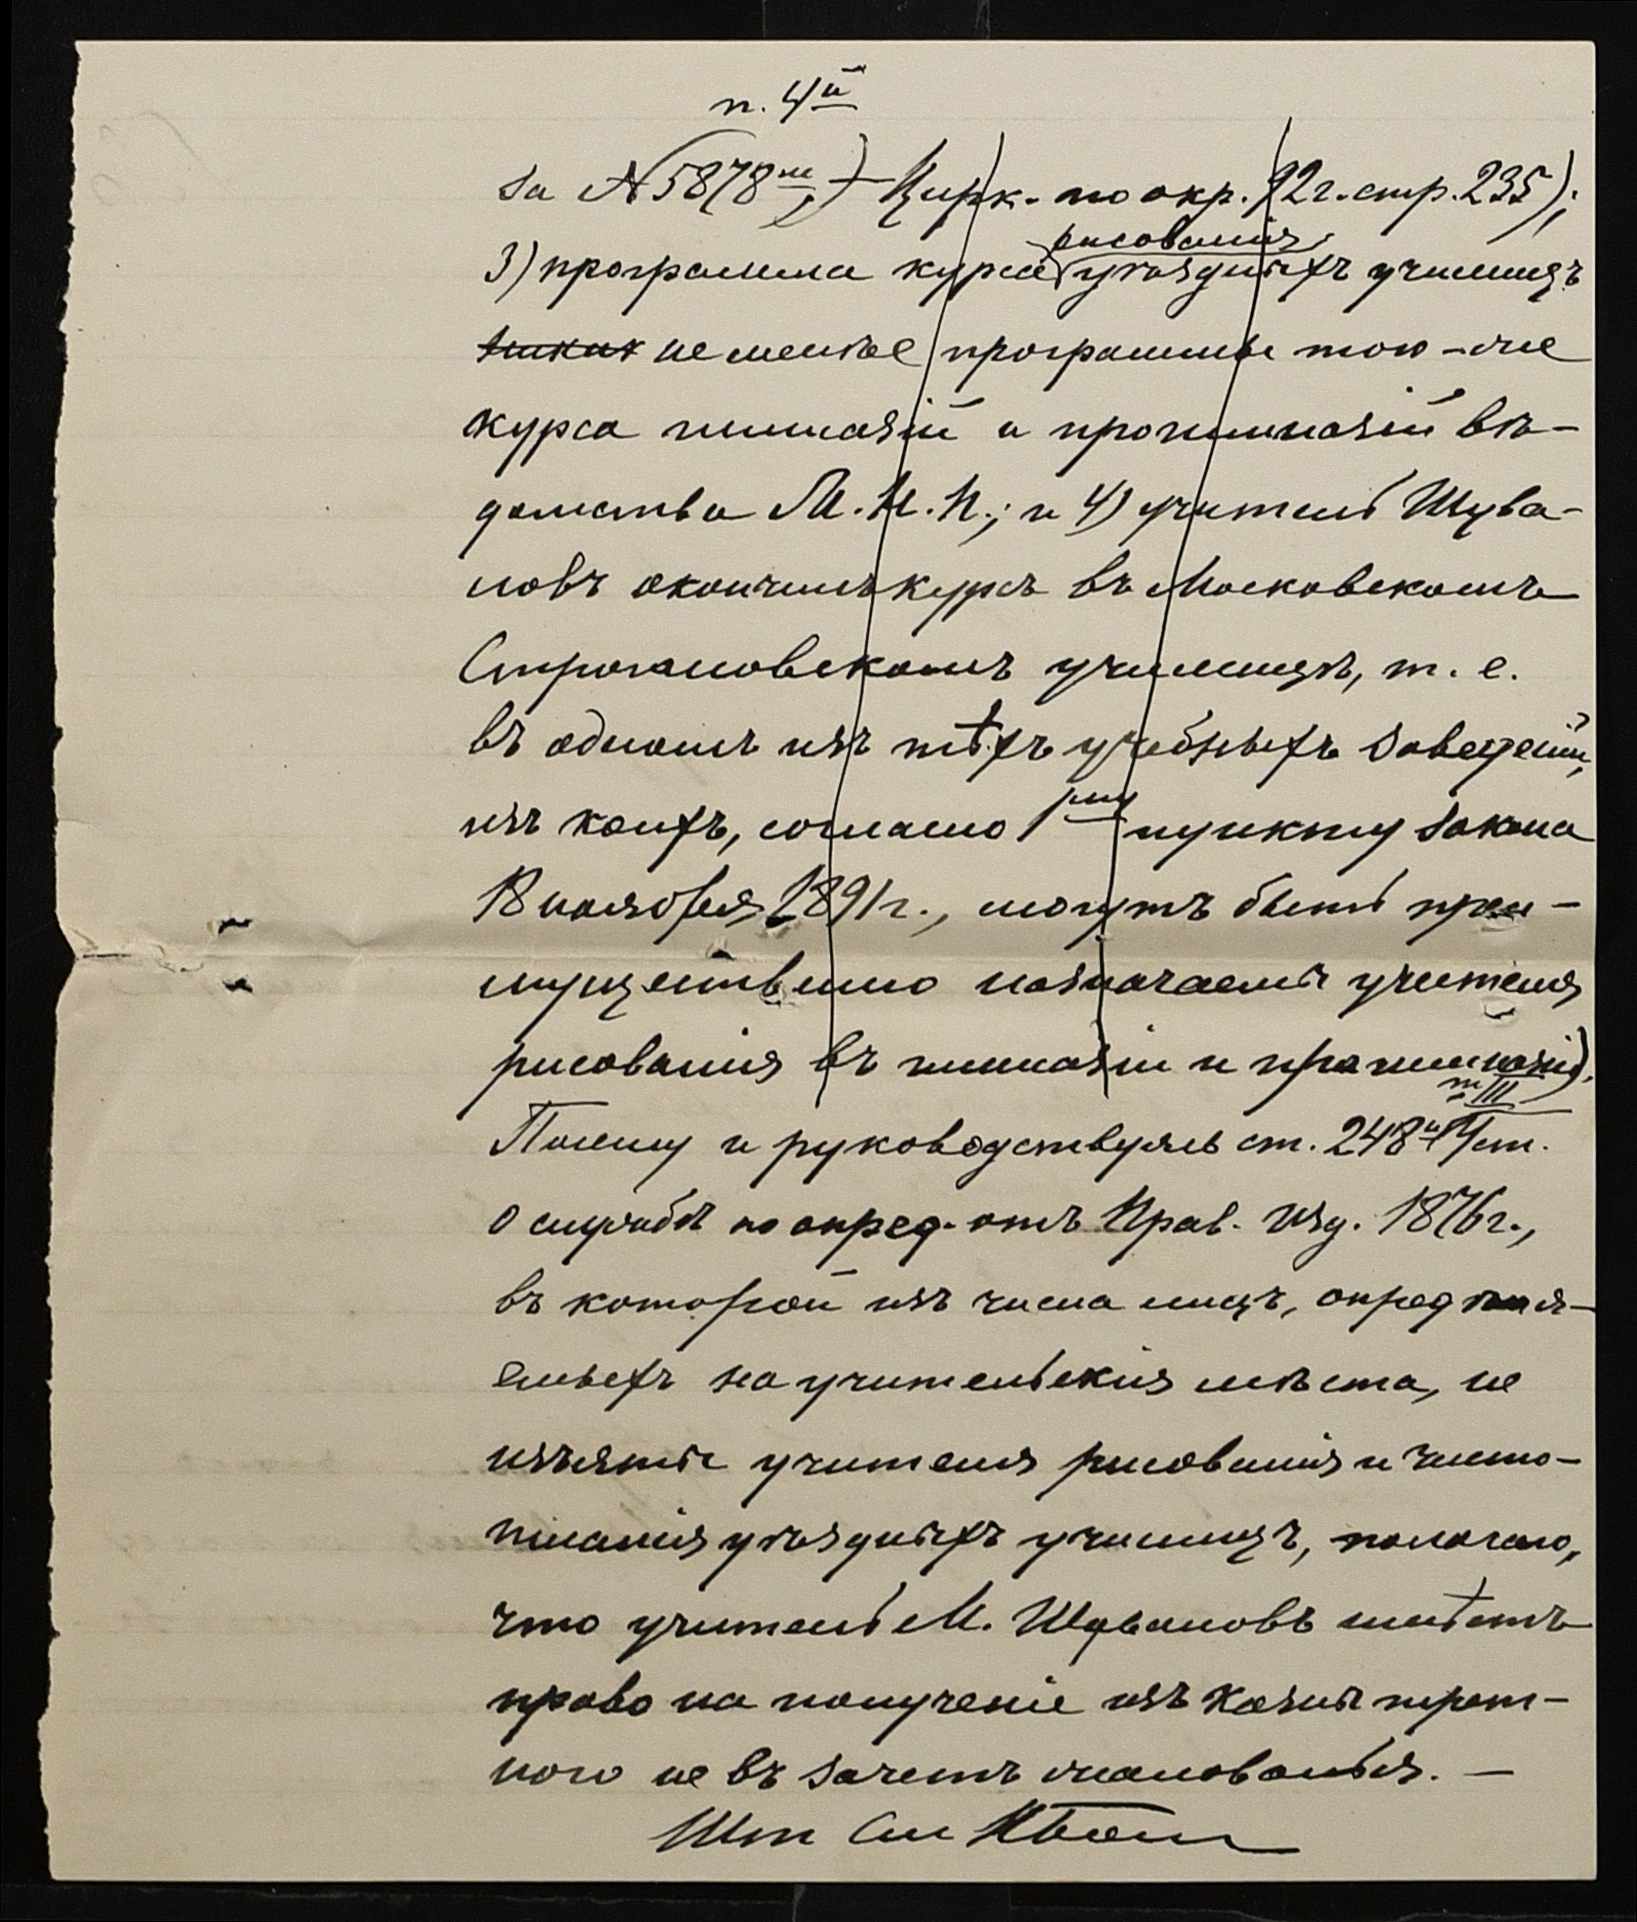 п. 4й
за №5878м,) Цирк. по окр. 92г. стр. 235);
рисованія
3) программа курса уѣздныхъ училищъ
не менѣе программы того-же
курса гимназій и прогимназій вѣ-
домства М. Н. П.; и 4) учитель Шува-
ловъ окончилъ курсъ въ Московскомъ
Строгановскомъ училищѣ, т. е.
въ одномъ изъ тѣхъ учебныхъ заведеній,
изъ коихъ, согласно 1му пункту закона
18 ноября 1891г., могутъ быть преи-
мущественно назначаемы учителя
рисованія въ гимназіи и прогимназіи).
т III
Посему и руководствуясь ст. 248й Уст.
о службѣ по опред. отъ Прав. изд. 1876г.,
въ которой изъ числа лицъ, опредѣля-
емыхъ на учительскія мѣста, не
изъяты учителя рисованія и чисто-
писанія уѣздныхъ училищъ, полагаю,
что учитель М. Шуваловъ имѣетъ
право на полученіе изъ казны трет-
ного не въ зачетъ жалованья. —